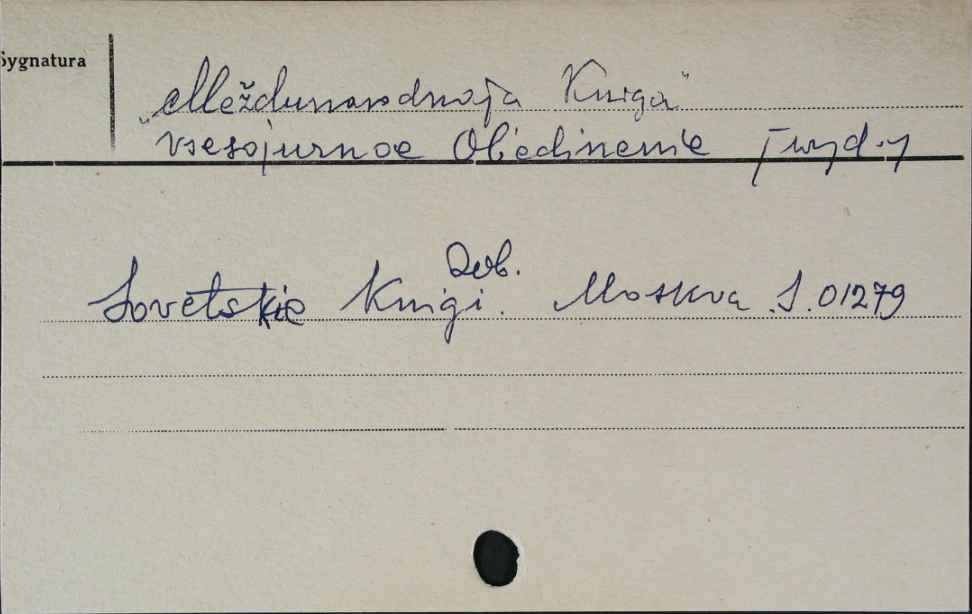 Sygnatura
„Meždunarodnaja Kniga"
Vsesojuznoe Ob'edinenie [wyd.]
Dub.
Sovetskie Knigi. Moskva S. 01279